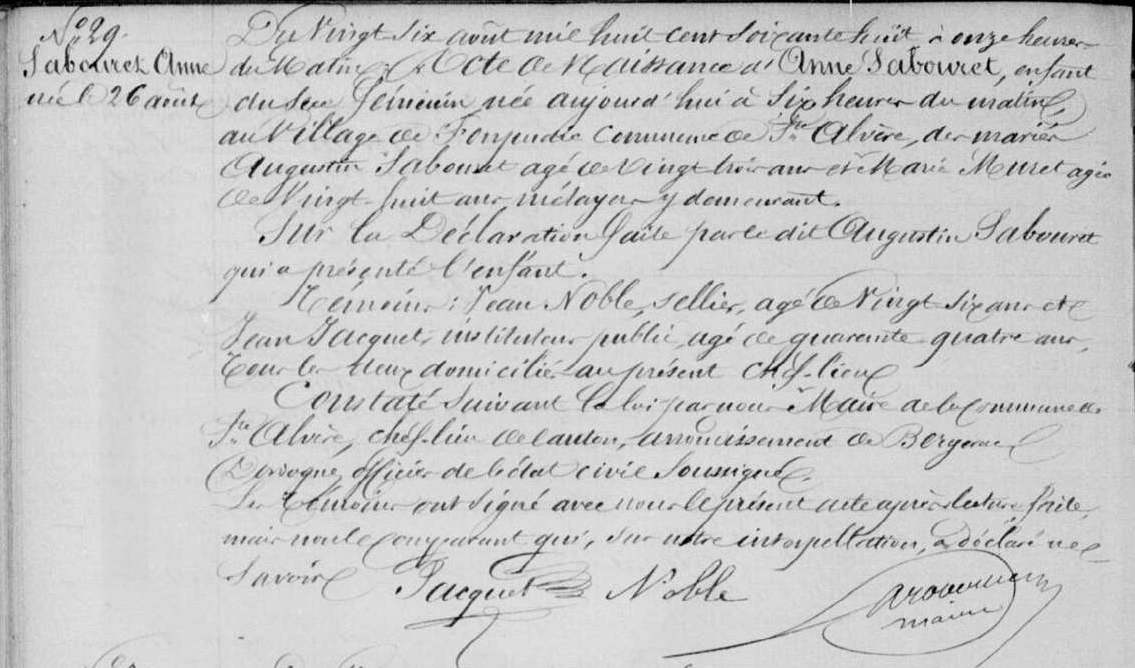 No 29.
Sabouret Anne
née le 26 août
Du Vingt Six août mil huit cent soixante huit à onze heures
du Matin, Acte de Naissance d'Anne Sabouret, enfant
du sexe féminin née aujourd'hui à Six heures du matin,
au Village de commune de Ste Alvère, des mariés
Augustin Sabouret agé de Vingt trois ans et Marie Muret agée
de Vingt-huit ans, métayers y demeurant.
Sur la Déclaration faite par le dit Augustin Sabouret
qui a présenté l'enfant.
Témoins: Jean Noble, sellier, agé de Vingt six ans et
Jean Jacquet, instituteur public, agé de quarante quatre ans,
tous les deux domiciliés au présent chef-lieu
Constaté Suivant la loi par nous Maire de la Commune de
Ste Alvère, chef-lieu de canton, arrondissement de Bergerac
Dordogne, officier de l'état civil Soussigné.
Les témoins ont signé avec nous le présent acte après lecture faite,
mais non le comparant qui, sur notre interpellation, a déclaré ne
Savoir
Jacquet Noble
maire